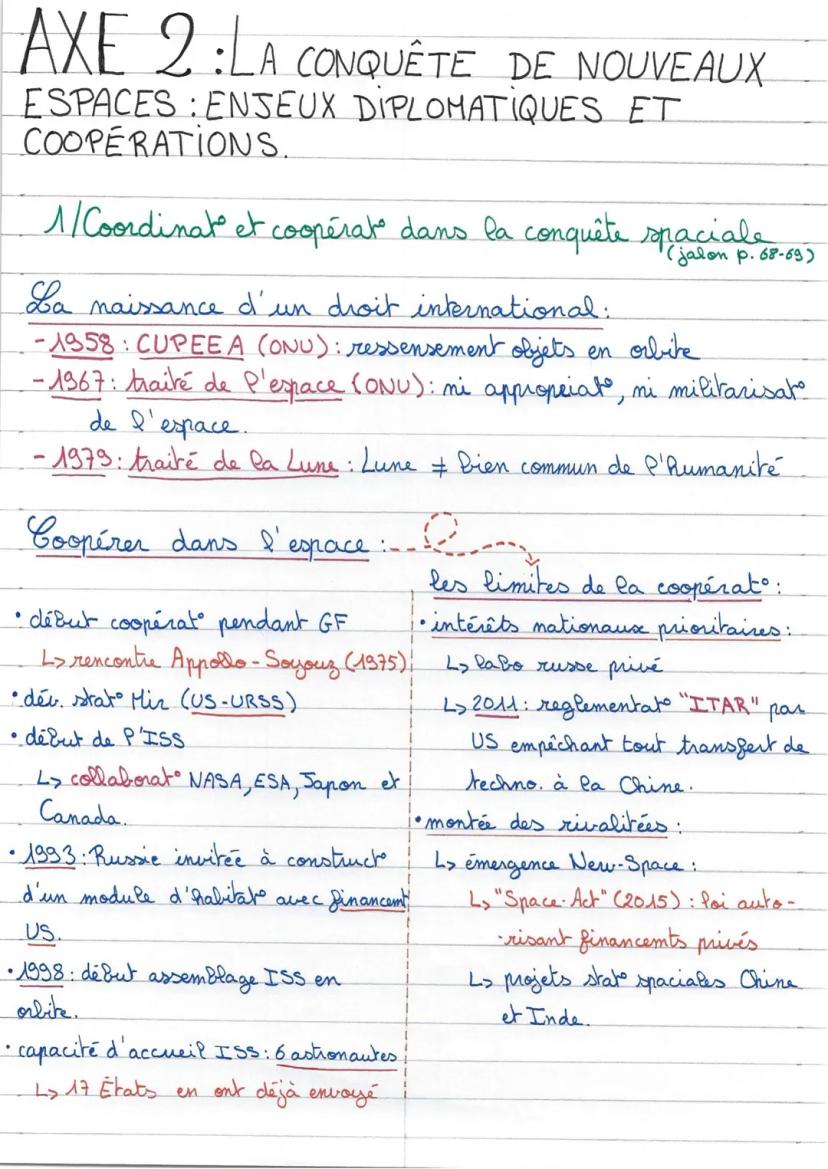 AXE 2 : LA CONQUÊTE DE NOUVEAUX
ESPACES : ENJEUX DIPLOMATIQUES ET
COOPÉRATIONS.
1/Coordinat° et coopérat° dans la conquête spaciale
(jalon p. 68-69)
La naissance d'un droit international :
- 1958 : CUPEEA (ONU) : ressensement objets en orbite
- 1967 : traité de l'espace (ONU) : ni appropriat°, ni militarisat°
de l'espace.
- 1979 : traité de la Lune : Lune ≠ bien commun de l'Humanité
Coopérer dans l'espace :
• début coopérat° pendant GF
↳ rencontre Appollo-Soyouz (1975)
• dév. stat° Mir (US-URSS)
• début de l'ISS
↳ collaborat° NASA, ESA, Japon et
Canada.
• 1993 : Russie invitée à construct°
d'un module d'habitat° avec financemt
US.
• 1998 : début assemblage ISS en
orbite.
• capacité d'accueil ISS : 6 astronautes
↳ 17 États en ont déjà envoyé
les limites de la coopérat° :
• intérêts nationaux prioritaires :
↳ labo russe privé
↳ 2011 : reglementat° "ITAR" par
US empêchant tout transfert de
techno. à la Chine.
• montée des rivalitées :
↳ émergence New-Space :
↳ "Space-Act" (2015) : loi auto-
-risant financemts privés
↳ projets stat° spaciales Chine
et Inde.